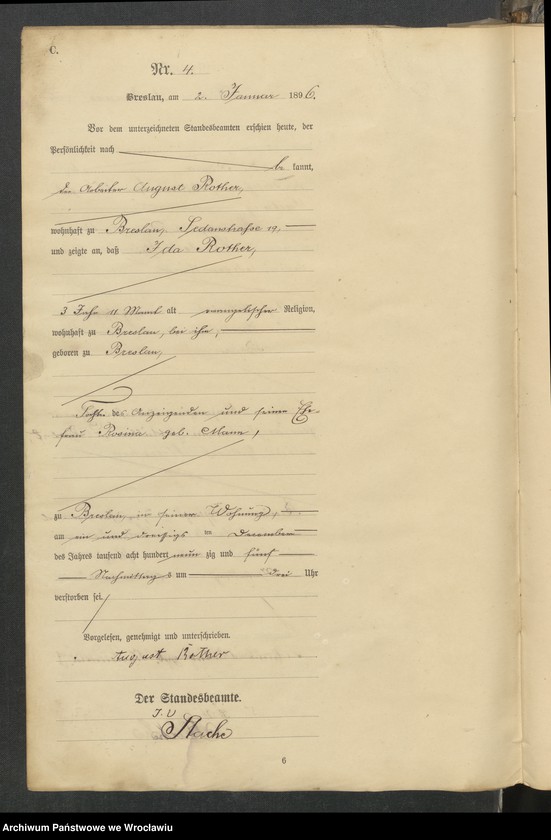 C.
Nr. 4.
Breslau, am 2. Januar 1896.
Vor dem unterzeichneten Standesbeamten erschien heute, der
Persönlichkeit nach
be kannt,
der Arbeiter August Rother,
wohnhaft zu Breslau, Sedanstraße 19,
und zeigte an, daß Ida Rother,
3 Jahr 11 Monat alt evangelischer Religion,
wohnhaft zu Breslau, bei ihm,
geboren zu Breslau,
Tochter des Anzeigenden und seiner Ehe-
frau Rosina geb.
zu Breslau, in seiner Wohnung,
am ein und dreißigsten December
des Jahres tausend acht hundert neun zig und fünf
Nachmittags um drei Uhr
verstorben sei.
Vorgelesen, genehmigt und unterschrieben.
August Rother
Der Standesbeamte.
6
Archiwum Państwowe we Wrocławiu